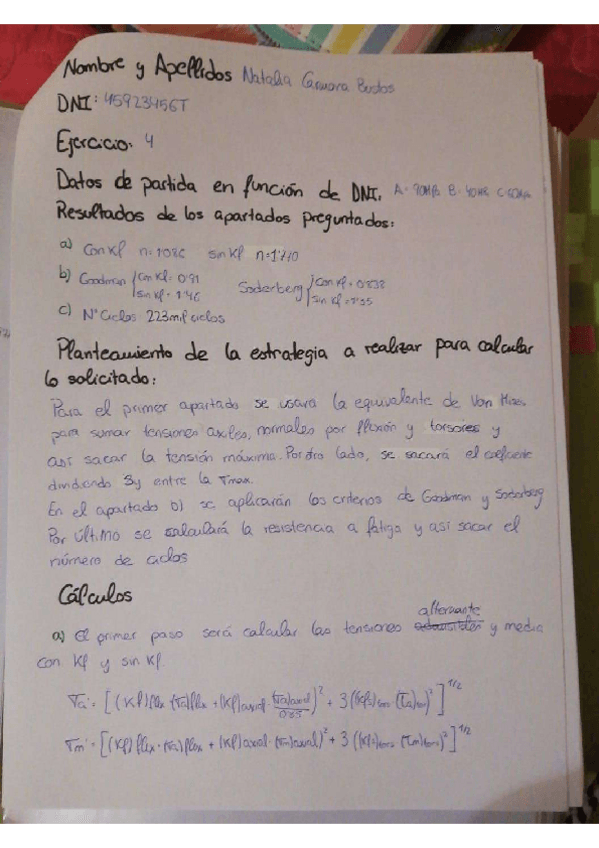 Nombre y Apellidos Natalia Carmona Bustos
DNI: 45923456T
Ejercicio: 4
Datos de partida en función de DNI. A= 90MPa B= 40MPa C=50MPa
Resultados de los apartados preguntados:
a) Con Kf n=1'086 sin Kf n=1'770
b) Goodman { con Kf= 0'91 Soderberg { con Kf= 0'838
sin Kf= 1'46 sin Kf=1'35
c) Nº Ciclos 223mil ciclos
Planteamiento de la estrategia a realizar para calcular
lo solicitado:
Para el primer apartado se usara la equivalente de Von Mises
para sumar tensiones axiles, normales por flexión y torsores y
así sacar la tensión máxima. Por otro lado, se sacará el coeficiente
dividiendo Sy entre la σmax.
En el apartado b) se aplicarán los criterios de Goodman y Soderberg
Por último se calculará la resistencia a fatiga y así sacar el
número de ciclos
Cálculos
alternante
a) El primer paso será calcular las tensiones y media
con Kf y sin Kf.
σa' = [((Kf)flex (σa)flex + (Kf)axial · (σa)axial/0'85)² + 3((Kfs)tors · (τa)tors)²]^1/2
σm' = [((Kf)flex · (σa)flex + (Kf)axial · (σm)axial)² + 3((Kfs)tors · (τm)tors)²]^1/2